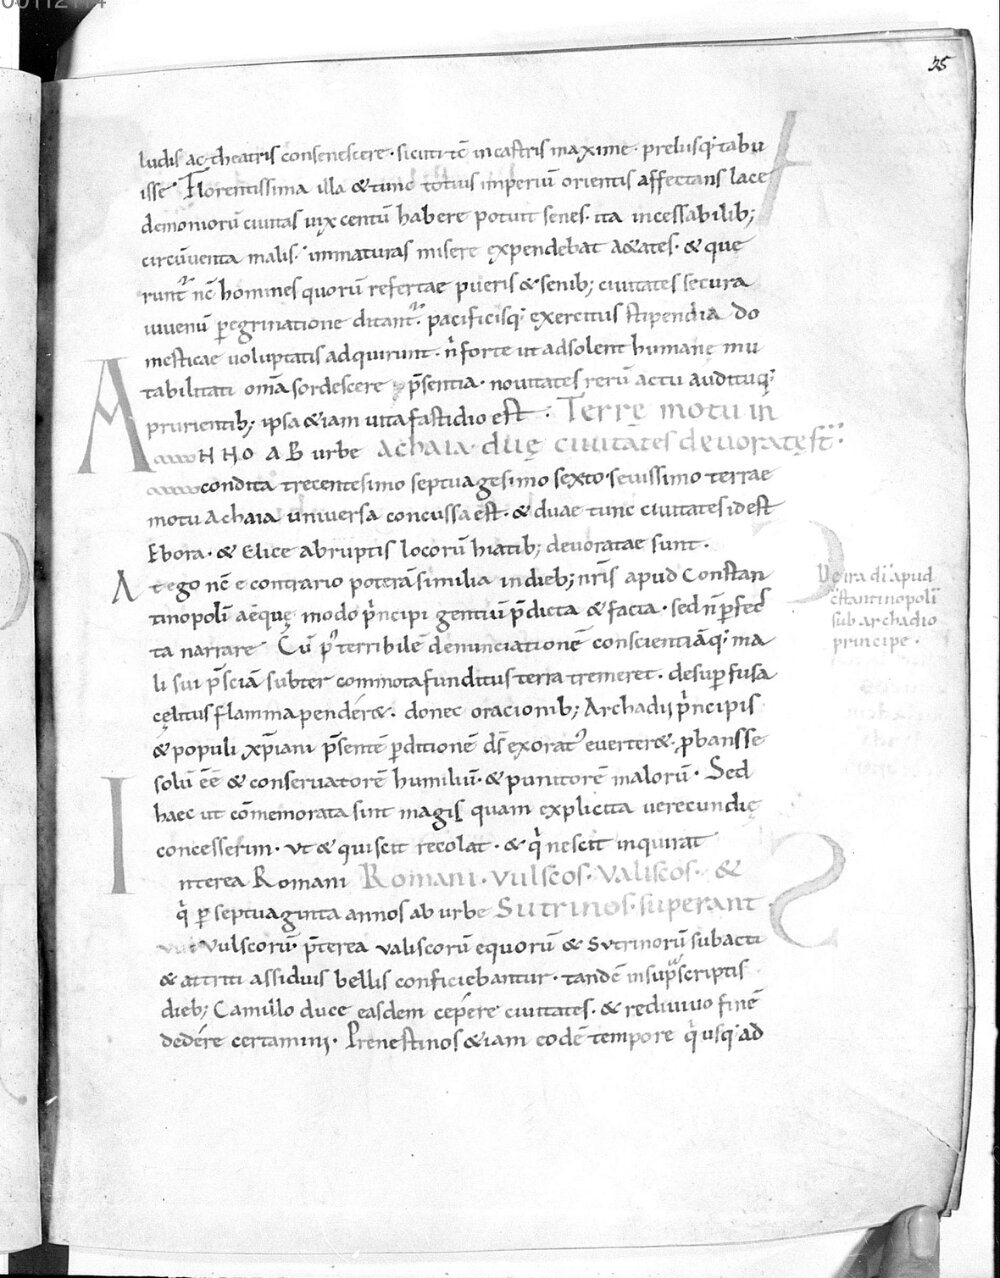 00112114
35
ludis ac theatris consenescere · sicuti tc̄ in castris maxime · prelusq; tabu
isse · Florentissima illa & tunc totius imperiū orientis affectans lace
demoniorū ciuitas uix centū habere potuit senes · ita incessabilib;
circūuenta malis · inmaturas misere expendebat aetates · & quę
runt̄ nc̄ homines quorū refertae pueris & senib; ciuitates secura
iuuenū peregrinatione ditant̄ · pacificisq; exercitus stipendia do
mesticae uoluptatis adquirunt · n̄ forte ut adsolent humanę mu
tabilitati om̄a sordescere p̄sentia · nouitates rerū actu audituq;
prurientib; ipsa & iam uita fastidio est · Terrę motu in
ANNO AB urbe Achaia · duę ciuitates deuoratę st̄ :
condita trecentesimo septuagesimo sexto · seuissimo terrae
motu Achaia uniuersa concussa est · & duae tunc ciuitates id est
Ebora · & Elice abruptis locorū hiatib; deuoratae sunt ·
At ego nc̄ e contrario poterā similia in dieb; nr̄is apud Constan
tinopolī aeq̨uę modo p̄ncipi gentiū p̄dicta & facta · sed n̄ p̄fec
ta narrare · Cū p̄ terribilē denunciationē conscientiāq; ma
li sui p̄sciā subter commota funditus terra tremeret · desup̄ fusa
cęlitus flamma penderet · donec oracionib; Archadii p̄ncipis
& populi xp̄iani p̄sentē p̄ditionē ds̄ exorat' euerteret · p̄bansse
solū eē & conseruatorē humiliū · & punitorē malorū · Sed
haec ut cōmemorata sint magis quam explicita uerecundię
concesserim · ut & qui scit recolat · & q̄ nescit inquirat
Interea Romani Romani · Vulscos · Valiscos · &
q̄ p̄ septuaginta annos ab urbe Sutrinos · superant
Vulscorū · p̄terea ualiscorū equorū & Sutrinorū subacti
& attriti assiduis bellis conficiebantur · tandē in sup̄scriptis
dieb; Camillo duce easdem cepére ciuitates · & rediuiuo finē
dedére certamini · Prenestinos & iam eodē tempore q̄ usq; ad
De ira dī apud
cstantinopolī
sub archadio
principe ·